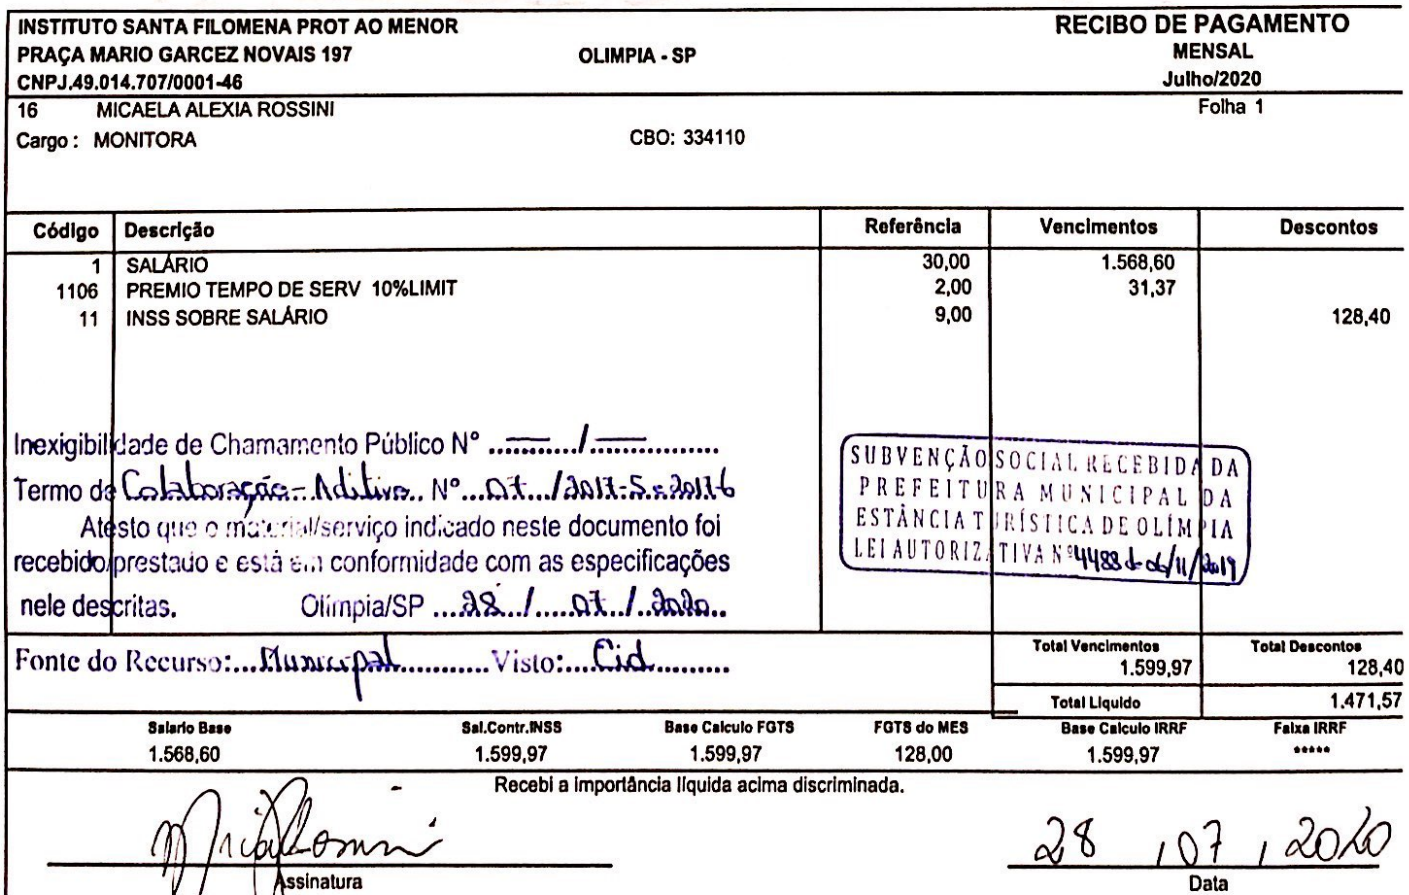 INSTITUTO SANTA FILOMENA PROT AO MENOR
RECIBO DE PAGAMENTO
PRAÇA MARIO GARCEZ NOVAIS 197 OLIMPIA - SP MENSAL
CNPJ.49.014.707/0001-46 Julho/2020
16 MICAELA ALEXIA ROSSINI Folha 1
Cargo : MONITORA CBO: 334110
Código Descrição Referência Vencimentos Descontos
1 SALÁRIO 30,00 1.568,60
1106 PREMIO TEMPO DE SERV 10%LIMIT 2,00 31,37
11 INSS SOBRE SALÁRIO 9,00 128,40
Inexigibilidade de Chamamento Público Nº ......../.................
Termo de Colaboração - Aditivo.. Nº...07.../2017-5 e 2017-6
Atesto que o material/serviço indicado neste documento foi
recebido/prestado e está em conformidade com as especificações
nele descritas. Olímpia/SP ....28.../.....07.../..2020..
SUBVENÇÃO SOCIAL RECEBIDA DA
PREFEITURA MUNICIPAL DA
ESTÂNCIA TURÍSTICA DE OLÍMPIA
LEI AUTORIZATIVA Nº 4488 de 06/11/2019
Fonte do Recurso:...Municipal............Visto:....Cid..........
Total Vencimentos Total Descontos
1.599,97 128,40
Total Liquido 1.471,57
Salario Base Sal.Contr.INSS Base Calculo FGTS FGTS do MES Base Calculo IRRF Faixa IRRF
1.568,60 1.599,97 1.599,97 128,00 1.599,97 *****
Recebi a importância líquida acima discriminada.
28 / 07 / 2020
Assinatura Data